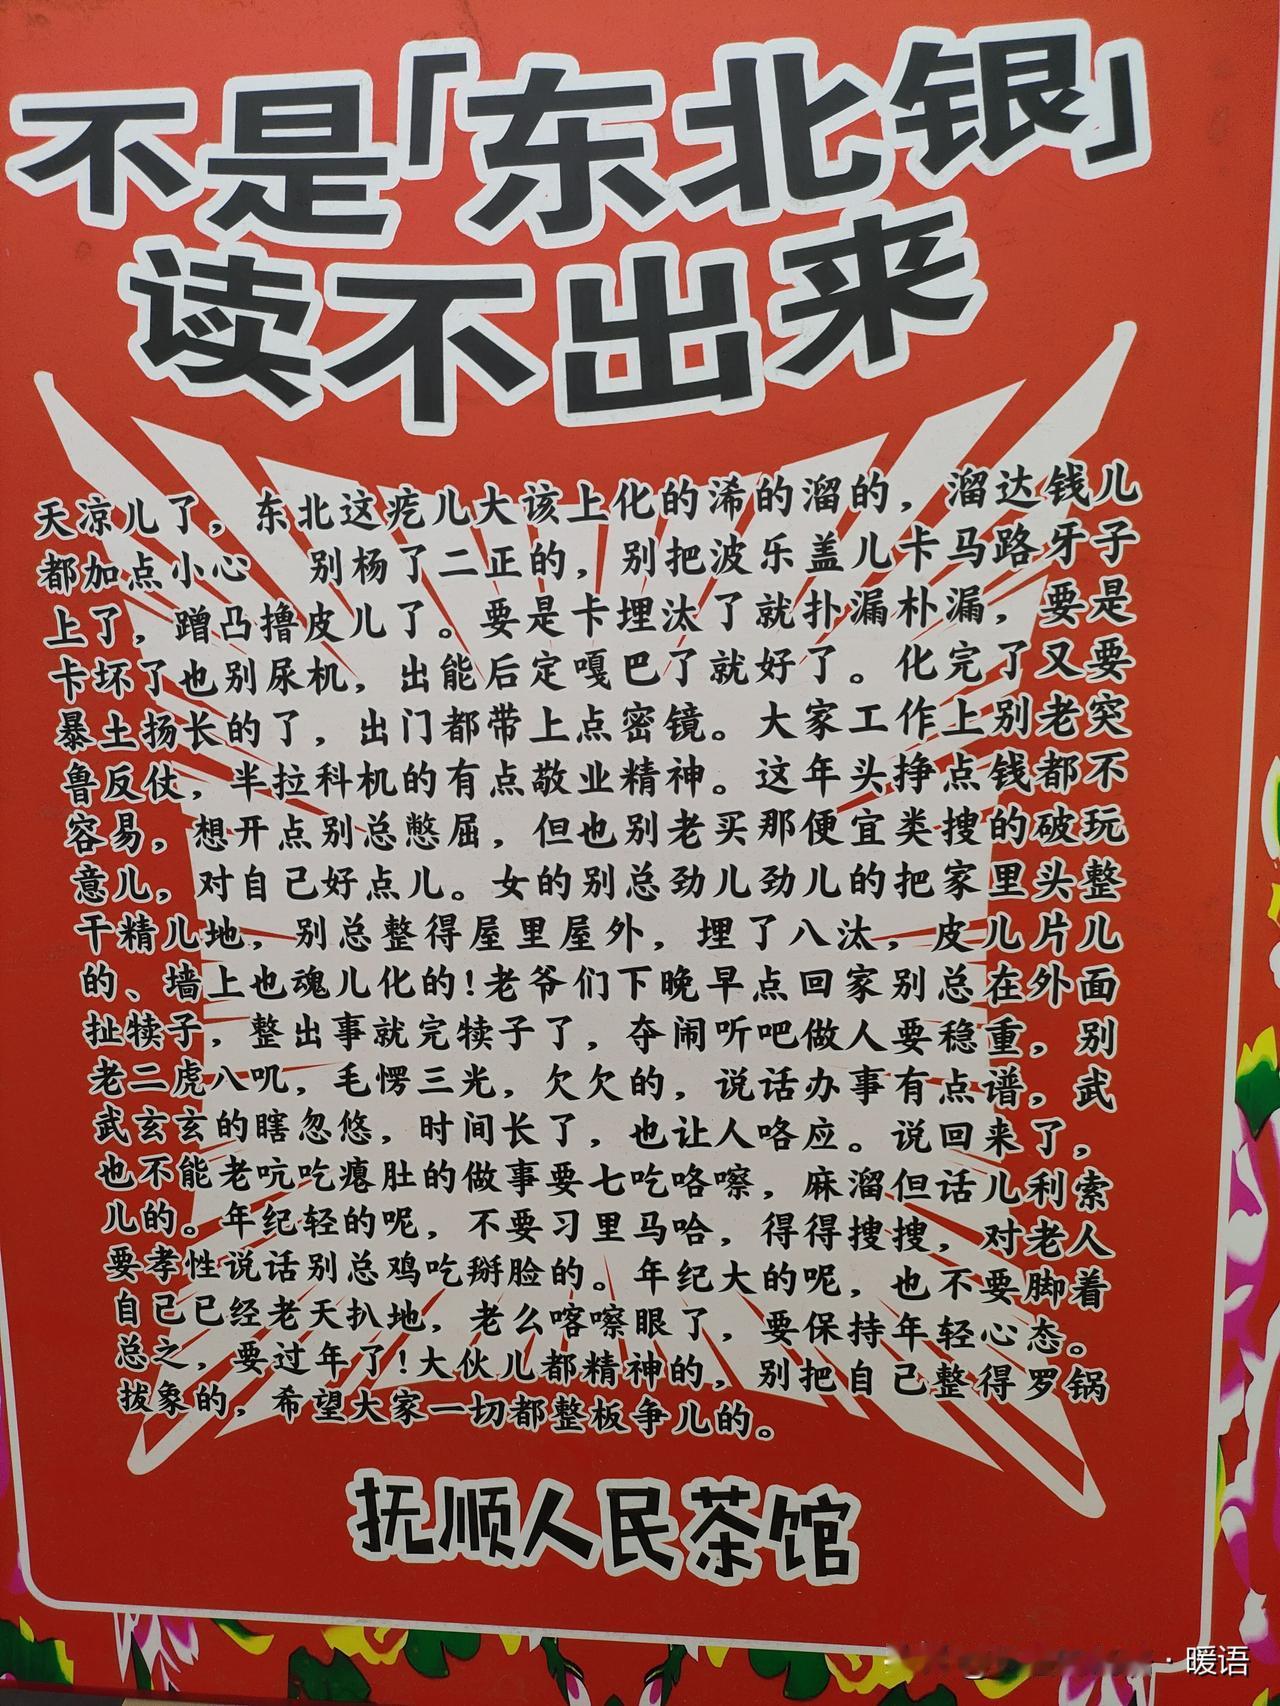 不是「东北银」
读不出来
天凉儿了，东北这疙儿大该上化的浠的溜的，溜达钱儿
都加点小心 别杨了二正的，别把波乐盖儿卡马路牙子
上了，蹭凸撸皮儿了。要是卡埋汰了就扑漏朴漏，要是
卡坏了也别尿机，出能后定嘎巴了就好了。化完了又要
暴土扬长的了，出门都带上点密镜。大家工作上别老突
鲁反仗，半拉科机的有点敬业精神。这年头挣点钱都不
容易，想开点别总憋屈，但也别老买那便宜类搜的破玩
意儿，对自己好点儿。女的别总劲儿劲儿的把家里头整
干精儿地，别总整得屋里屋外，埋了八汰，皮儿片儿
的、墙上也魂儿化的!老爷们下晚早点回家别总在外面
扯犊子，整出事就完犊子了，夺闹听吧做人要稳重，别
老二虎八叽，毛愣三光，欠欠的，说话办事有点谱，武
武玄玄的瞎忽悠，时间长了，也让人咯应。说回来了，
也不能老吭吃瘪肚的做事要七吃咯嚓，麻溜但话儿利索
儿的。年纪轻的呢，不要习里马哈，得得搜搜，对老人
要孝性说话别总鸡吃掰脸的。年纪大的呢，也不要脚着
自己已经老天扒地，老么喀嚓眼了，要保持年轻心态。
总之，要过年了!大伙儿都精神的，别把自己整得罗锅
拔象的，希望大家一切都整板争儿的。
抚顺人民茶馆
· 暖语